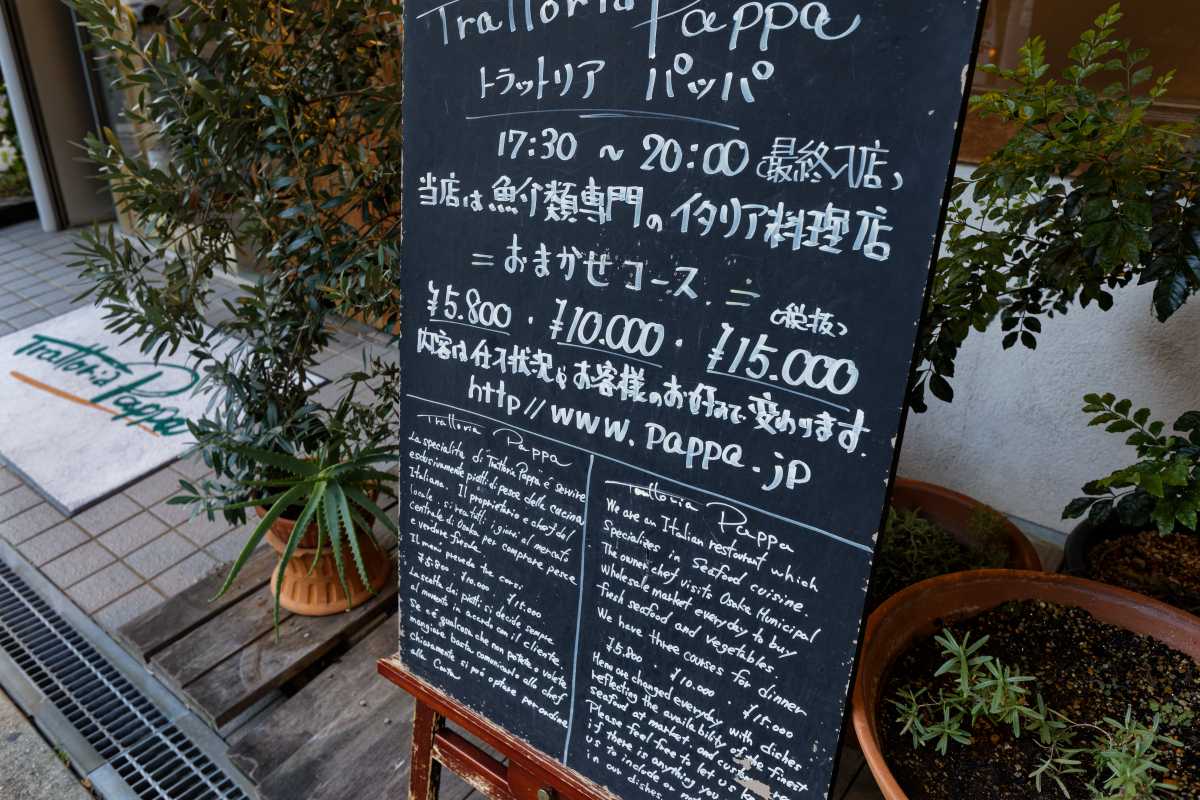 Trattoria Pappa
トラットリア パッパ
17:30 ~ 20:00 (最終入店)
当店は魚介類専門のイタリア料理店
= おまかせコース =
(税抜)
¥5.800 ・ ¥10.000 ・ ¥15.000
内容は仕入状況やお客様のお好みで変わります.
http//www.pappa.jp
Trattoria Pappa
La specialità di Trattoria Pappa è servire
esclusivamente piatti di pesce della cucina
Italiana. Il proprietario e chef del
locale si reca tutti i giorni al mercato
centrale di Osaka per comprare pesce
e verdure fresche.
Il menù prevede tre corsi
¥5.800 ¥10.000 ¥15.000
La scelta dei piatti si decide sempre
al momento in accordo con il cliente.
Se c'è qualcosa che non potete o volete
mangiare basta comunicarlo allo chef
chiaramente si può optare per ordine
alla Carta
Trattoria Pappa
We are an Italian restaurant which
Specializes in seafood cuisine.
The owner chef visits Osaka Municipal
Wholesale market everyday to buy
fresh seafood and vegetables.
We have three courses for dinner
¥5.800 ・ ¥10.000 ・ ¥15.000
Menu are changed everyday with dishes
reflecting the availability of the finest
seafood at market, and
Please feel free to let us
if there is anything you
us to include or not
in our dishes.
Trattoria Pappa